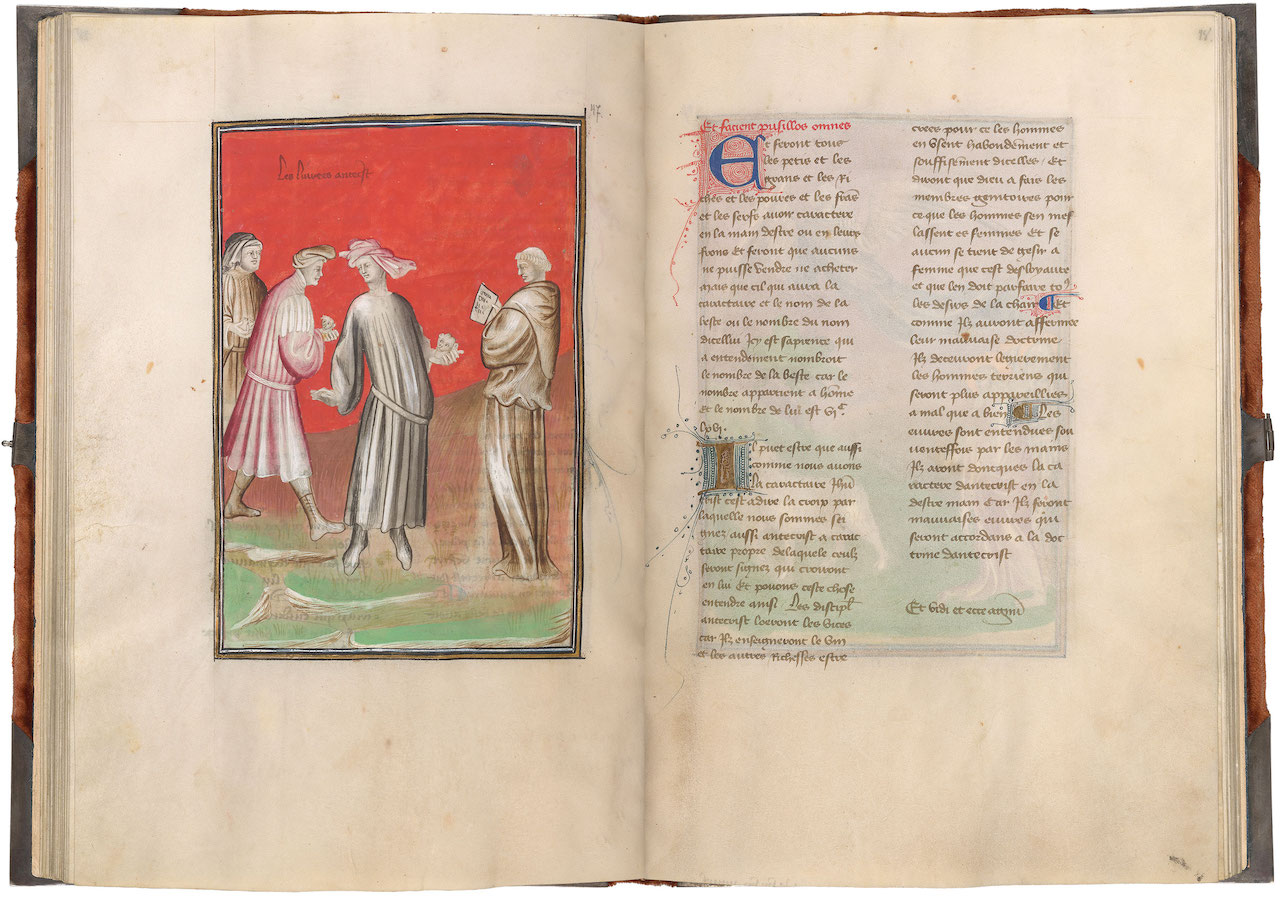 47
Les livrees antecrist
Et facient pusillos omnes
Et feront tous
les petis et les
grans et les Ri
ches et les poures et les frans
et les serfs auoir caractere
en la main destre ou en leurs
frons Et feront que aucuns
ne puisse vendre ne acheter
mais que cil qui aura la
caractaire et le nom de la
beste ou le nombre du nom
dicellui Icy est sapience qui
a entendement nombroit
le nombre de la beste car le
nombre appartient a home
Et le nombre de lui est Sis
lxvi.
Il puet estre que aussi
comme nous auons
la caractaire Jhu
crist cest adire la croix par
laquelle nous sommes sei
gnez aussi antecrist a carac
taire propre delaquele ceulz
seront signez qui croiront
en lui Et pouons ceste chose
entendre ainsi Les discipl
antecrist loeront les vices
car Ilz enseigneront le vin
et les autres Richesses estre
crees pour ce les hommes
en vsent habondement et
souffisement dicelles Et
diront que dieu a fais les
membres genitoires pour
ce que les hommes sen mes
lassent es femmes Et se
aucun se tient de gesir a
femme que cest desloyaute
et que len doit parfaire to9
les desirs de la char Et
comme Ilz auront afferme
leur mauuaise doctrine
Ilz deceuront legierement
les hommes terriens qui
seront plus appareillies
a mal que a bien Les
euures sont entendues sou
uenteffois par les mains
Ilz aront doncques la ca
ractere dantecrist en la
destre main Car Ilz feront
mauuaises euures qui
seront accordans a la doc
trine dantecrist
Et vidi et ecce agnu